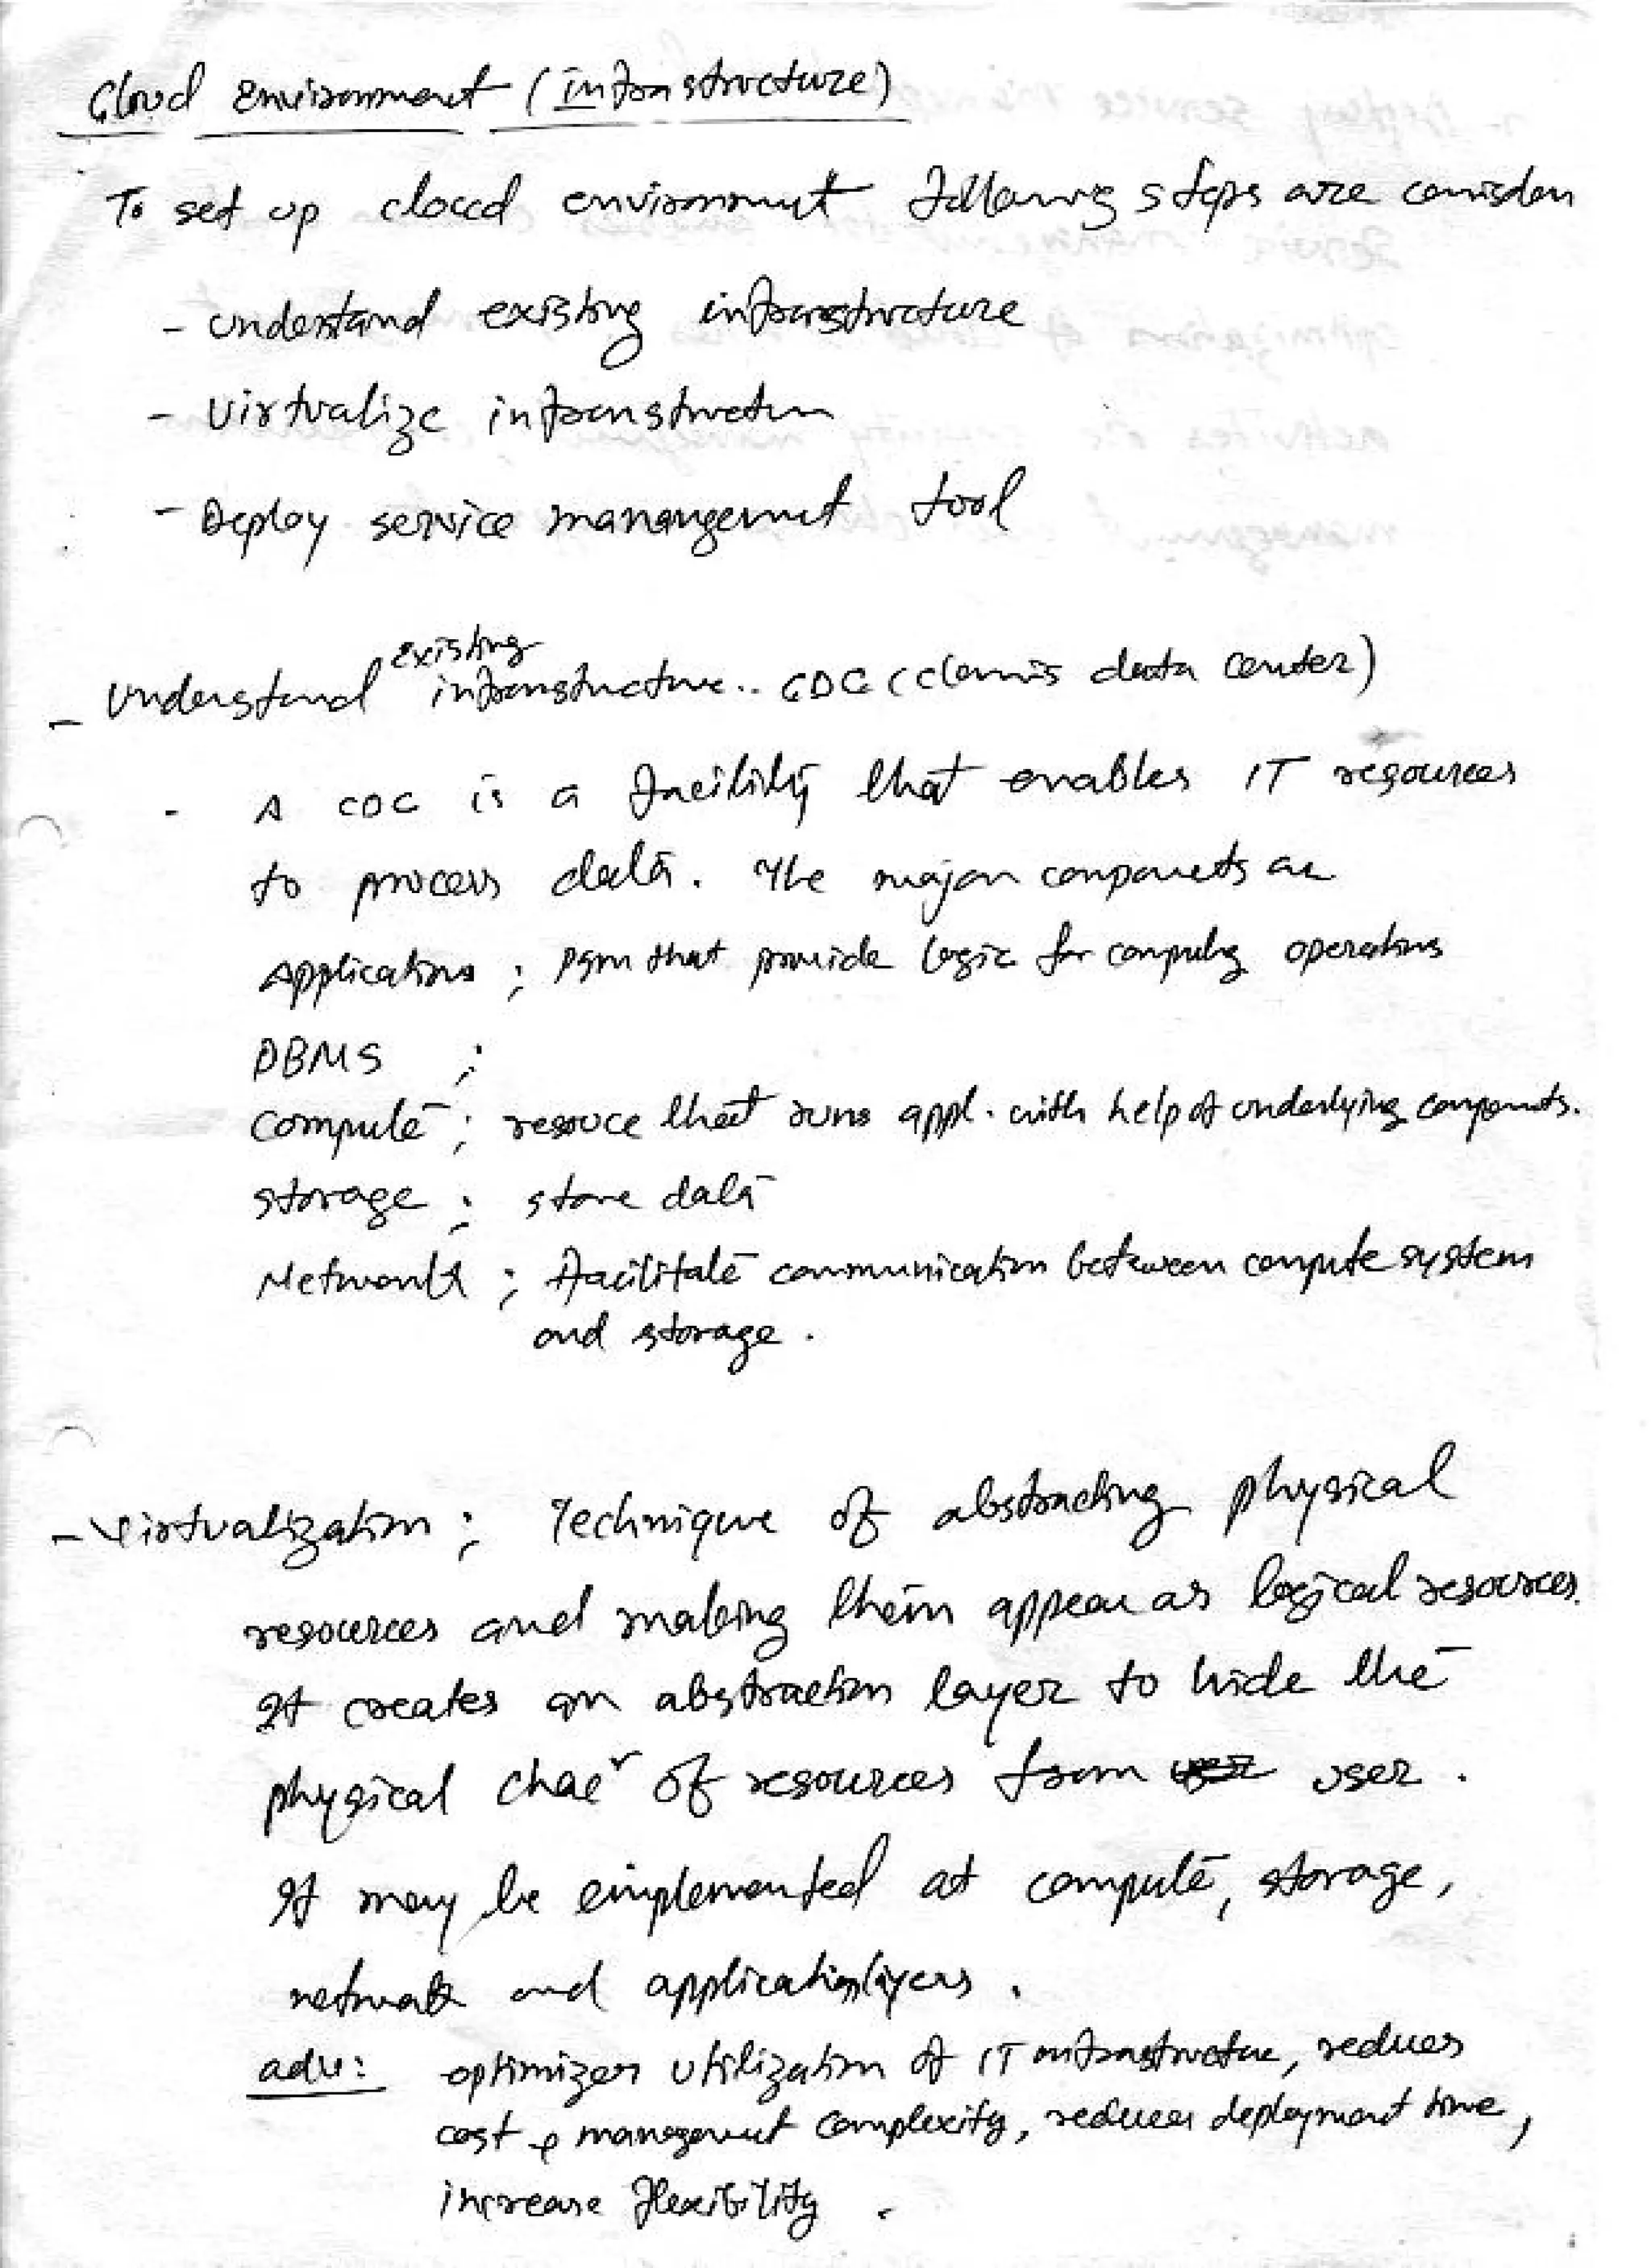 Cloud Environment (Infrastructure)
To set up cloud environment following steps are consider
- Understand existing infrastructure
- Virtualize infrastructure
- Deploy service management tool
existing
- Understand infrastructure.. CDC (classic data center)
- A CDC is a facility that enables IT resources
to process data. The major components are
Applications ; pgm that provide logic for computing operations
DBMS ;
Compute ; resouce that runs appl. with help of underlying components.
Storage ; store data
Network ; facilitate communication between compute system
and storage.
- Virtualization ; Technique of abstracting physical
resources and making them appear as logical resources.
It creates an abstraction layer to hide the
physical char of resources from user.
It may be implemented at compute, storage,
network and application layers.
adv: optimizes utilization of IT infrastructure, reduces
cost & management complexity, reduces deployment time,
increase flexibility.